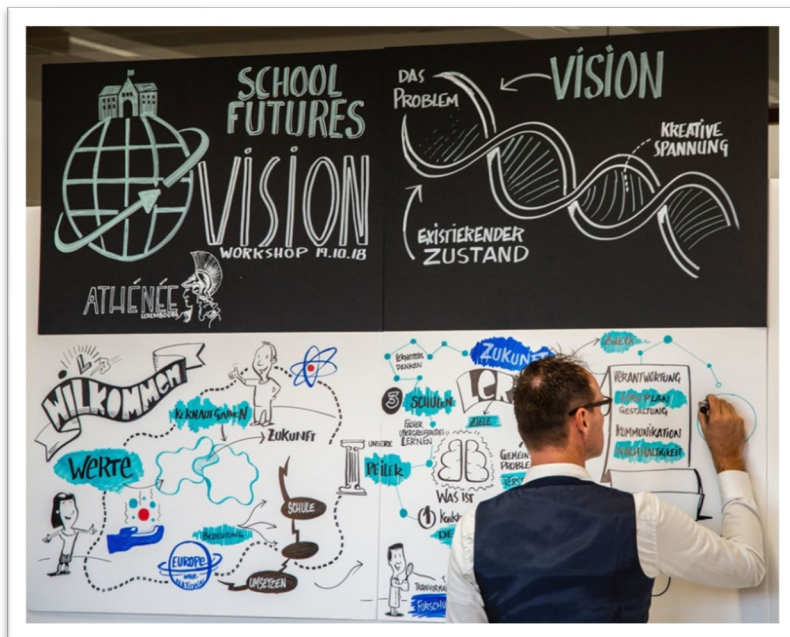 SCHOOL
FUTURES
VISION
WORKSHOP 19.10.18
ATHÉNÉE
LUXEMBOURG
DAS
PROBLEM
VISION
KREATIVE
SPANNUNG
EXISTIERENDER
ZUSTAND
WILKOMMEN
KERNAUFGABEN
ZUKUNFT
WERTE
BEDEUTUNG
SCHULE
EUROPE
UMSETZEN
UNSERE
PEILER
LERNETZTES
DENKEN
ZUKUNFT
3 SCHULEN
FÄCHER
ÜBERGREIFENDES
LERNEN
ZIELE
WAS IST
1
GEMEIN
PROBLE
VERANTWORTUNG
GESTALTUNG
KOMMUNIKATION
NACHHALTIGKEIT
FORSCHU